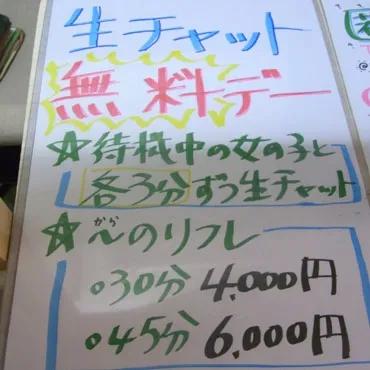 生チャット
無料デー
☆待機中の女の子と
各3分ずつ生チャット
☆〜(から)のリフレ
。30分 4,000円
。45分 6,000円